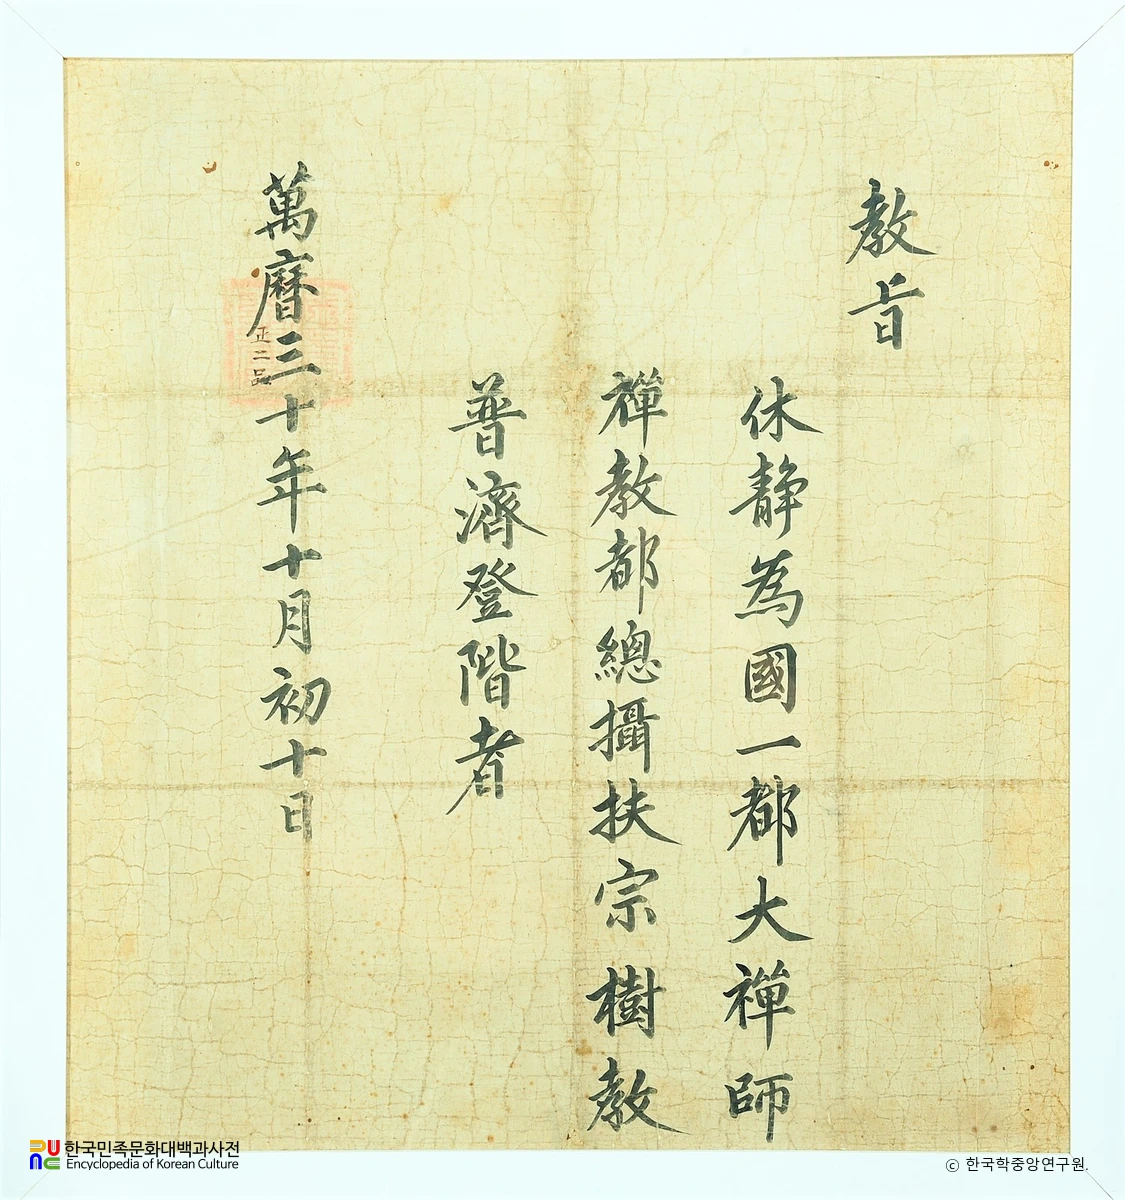 教旨
休静為國一都大禪師
禪教都總攝扶宗樹教
普濟登階者
萬曆三十年十月初十日
正二品
한국민족문화대백과사전
Encyclopedia of Korean Culture
ⓒ 한국학중앙연구원.